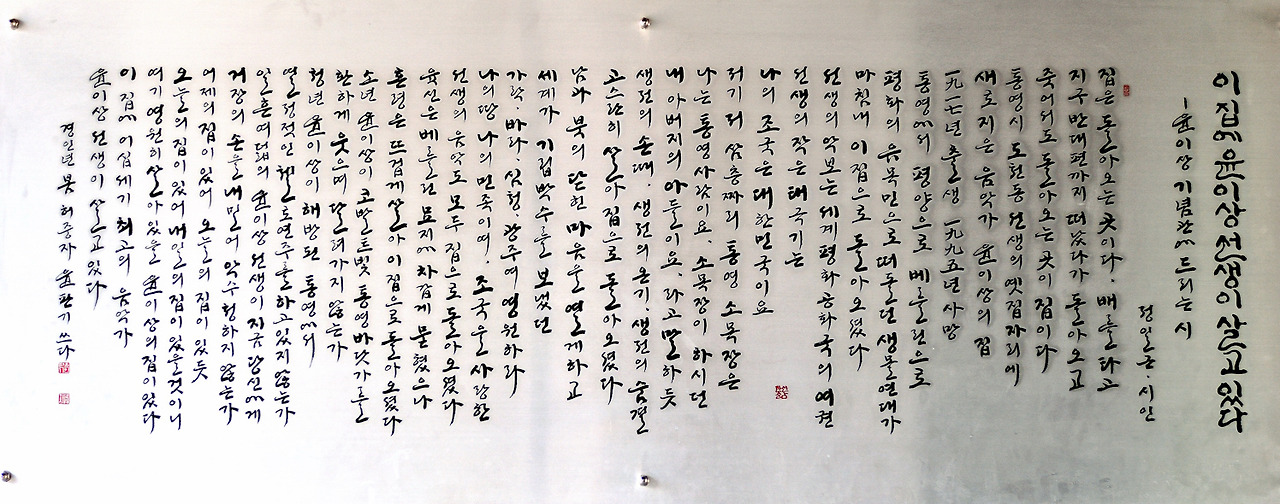 이 집에 윤이상 선생이 살고 있다
-尹이상 기념관에 드리는 시
정일근 시인
집은 돌아 오는 곳이다. 배를 타고
지구 반대편까지 떠났다가 돌아오고
죽어서도 돌아오는 곳이 집이다
통영시 도천동 선생의 옛집 자리에
새로 지은 음악가 尹이상의 집
一九一七년 출생 一九九五년 사망
통영에서 평양으로 베를린으로
평화의 유목민으로 떠돌던 생몰연대가
마침내 이 집으로 돌아 오셨다
선생의 악보는 세계평화 공화국의 여권
선생의 작은 태극기는
나의 조국은 대한민국이요
저기 저 삼층짜리 통영 소목장은
나는 통영사람이요. 소목장이 하시던
내 아버지의 아들이요. 라고 말하듯
생전의 손때. 생전의 온기. 생전의 숨결
고스란히 살아 집으로 돌아 오셨다
남과 북의 닫힌 마음을 열게하고
세계가 기립박수를 보냈던
가락 바라. 심청. 광주여 영원하라
나의 땅 나의 민족이여. 조국을 사랑한
선생의 음악도 모두 집으로 돌아 오셨다
육신은 베를린 묘지에 차갑게 묻혔으나
혼령은 뜨겁게 살아 이 집으로 돌아오셨다
소년 尹이상이 코발트빛 통영 바닷가를
환하게 웃으며 달려가지 않는가
청년 尹이상이 해방된 통영에서
열정적인 첼로연주를 하고있지 않는가
일흔여덟의 尹이상 선생이 지금 당신에게
거장의 손을 내밀어 악수 청하지 않는가
어제의 집이 있어 오늘의 집이 있듯
오늘의 집이 있어 내일의 집이 있을것이니
여기 영원히 살아있을 尹이상의 집이 있다
이 집에 이십세기 최고의 음악가
尹이상 선생이 살고 있다
경인년 봄 허중자 尹판기 쓰다